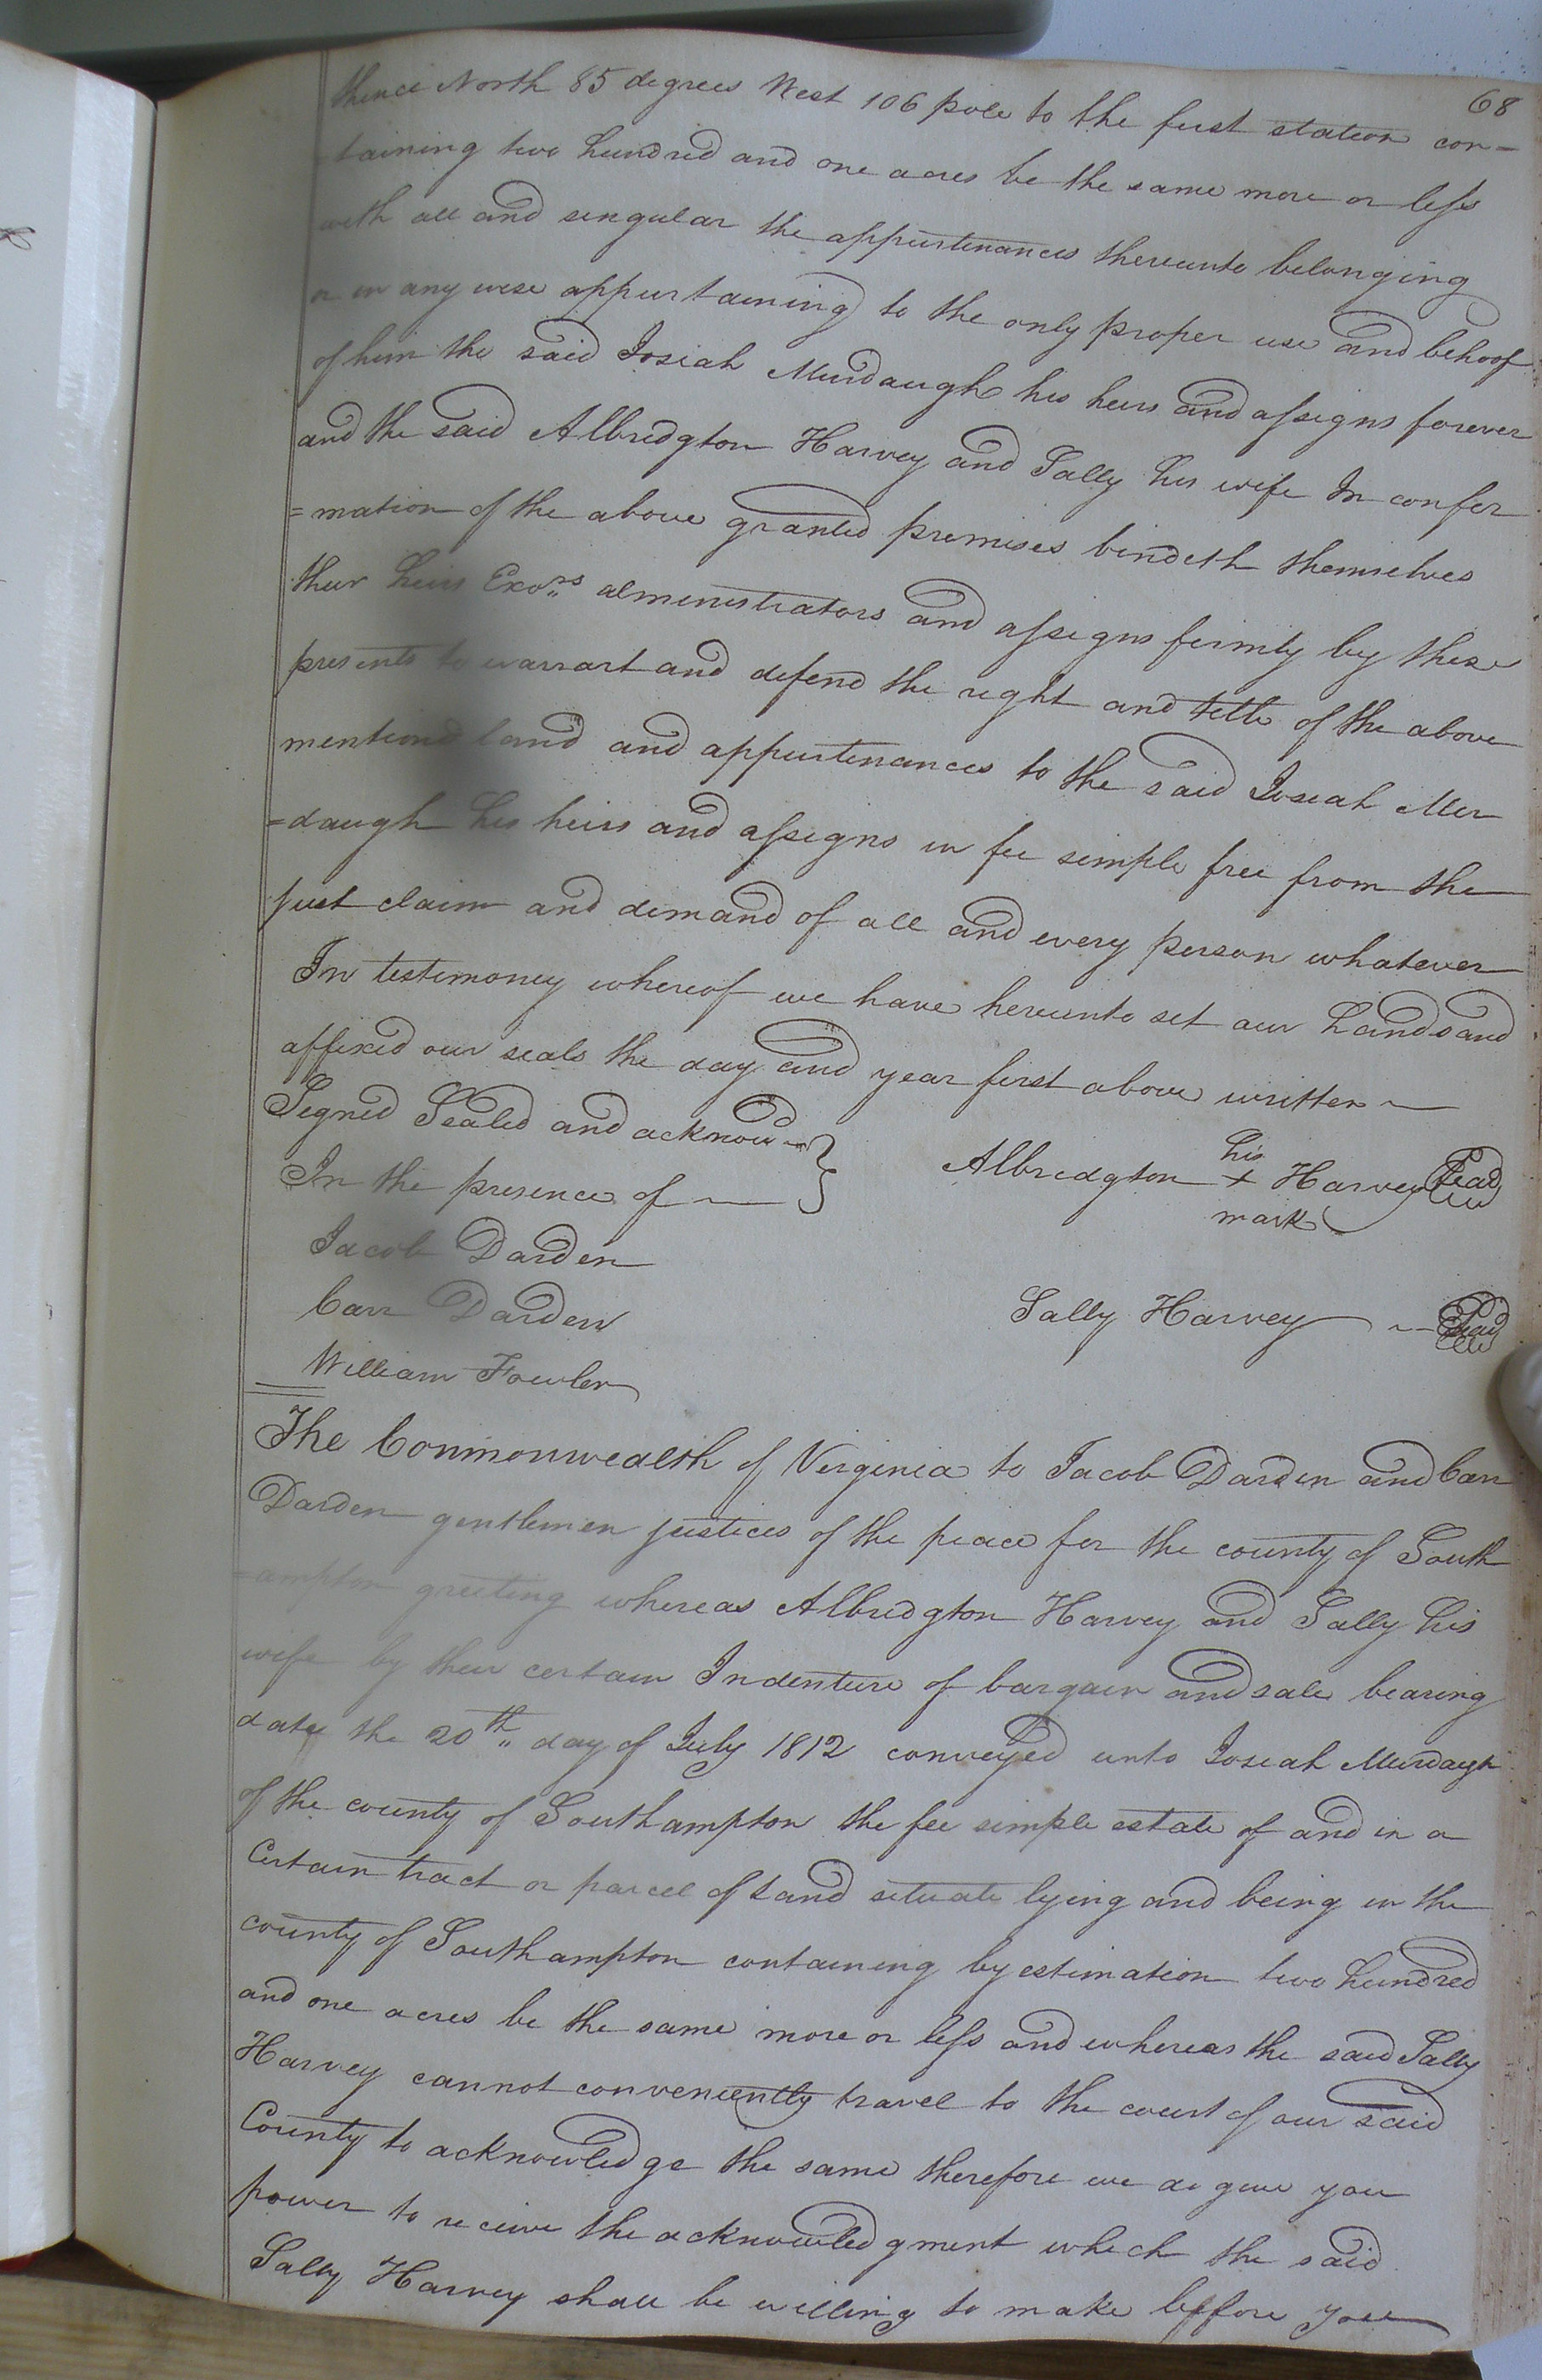 68
thence North 85 degrees West 106 pole to the first station con-
-taining two hundred and one acres be the same more or less
with all and singular the appurtenances thereunto belonging
or in any wise appurtaining to the only proper use and behoof
of him the said Josiah Murdaugh his heirs and assigns forever
and the said Albridgton Harvey and Sally his wife In confir
=mation of the above granted premises bindeth themselves
their heirs Exors administrators and assigns firmly by these
presents to warrart and defend the right and title of the above
mentiond land and appurtenances to the said Josiah Mur
=daugh his heirs and assigns in fee simple free from the
just claim and demand of all and every person whatever
In testimoney whereof we have hereunto set our hands and
affixed our seals the day and year first above written
Signed Sealed and acknow
In the presence of
Albridgton his + mark Harvey Seal
Jacob Darden
Carr Darden
Sally Harvey Seal
William Fowler
The Commonwealth of Virginia to Jacob Darden and Carr
Darden gentlemen justices of the peace for the county of South
=ampton greeting whereas Albridgton Harvey and Sally his
wife by their certain Indenture of bargain and sale bearing
date the 20th day of July 1812 conveyed unto Josiah Murdaugh
of the county of Southampton the fee simple estate of and in a
Certain tract or parcel of land situate lying and being in the
county of Southampton containing by estimation two hundred
and one acres be the same more or less and whereas the said Sally
Harvey cannot conveniently travel to the court of our said
County to acknowledge the same therefore we do give you
power to receive the acknowledgment which the said
Sally Harvey shall be willing to make beffore you